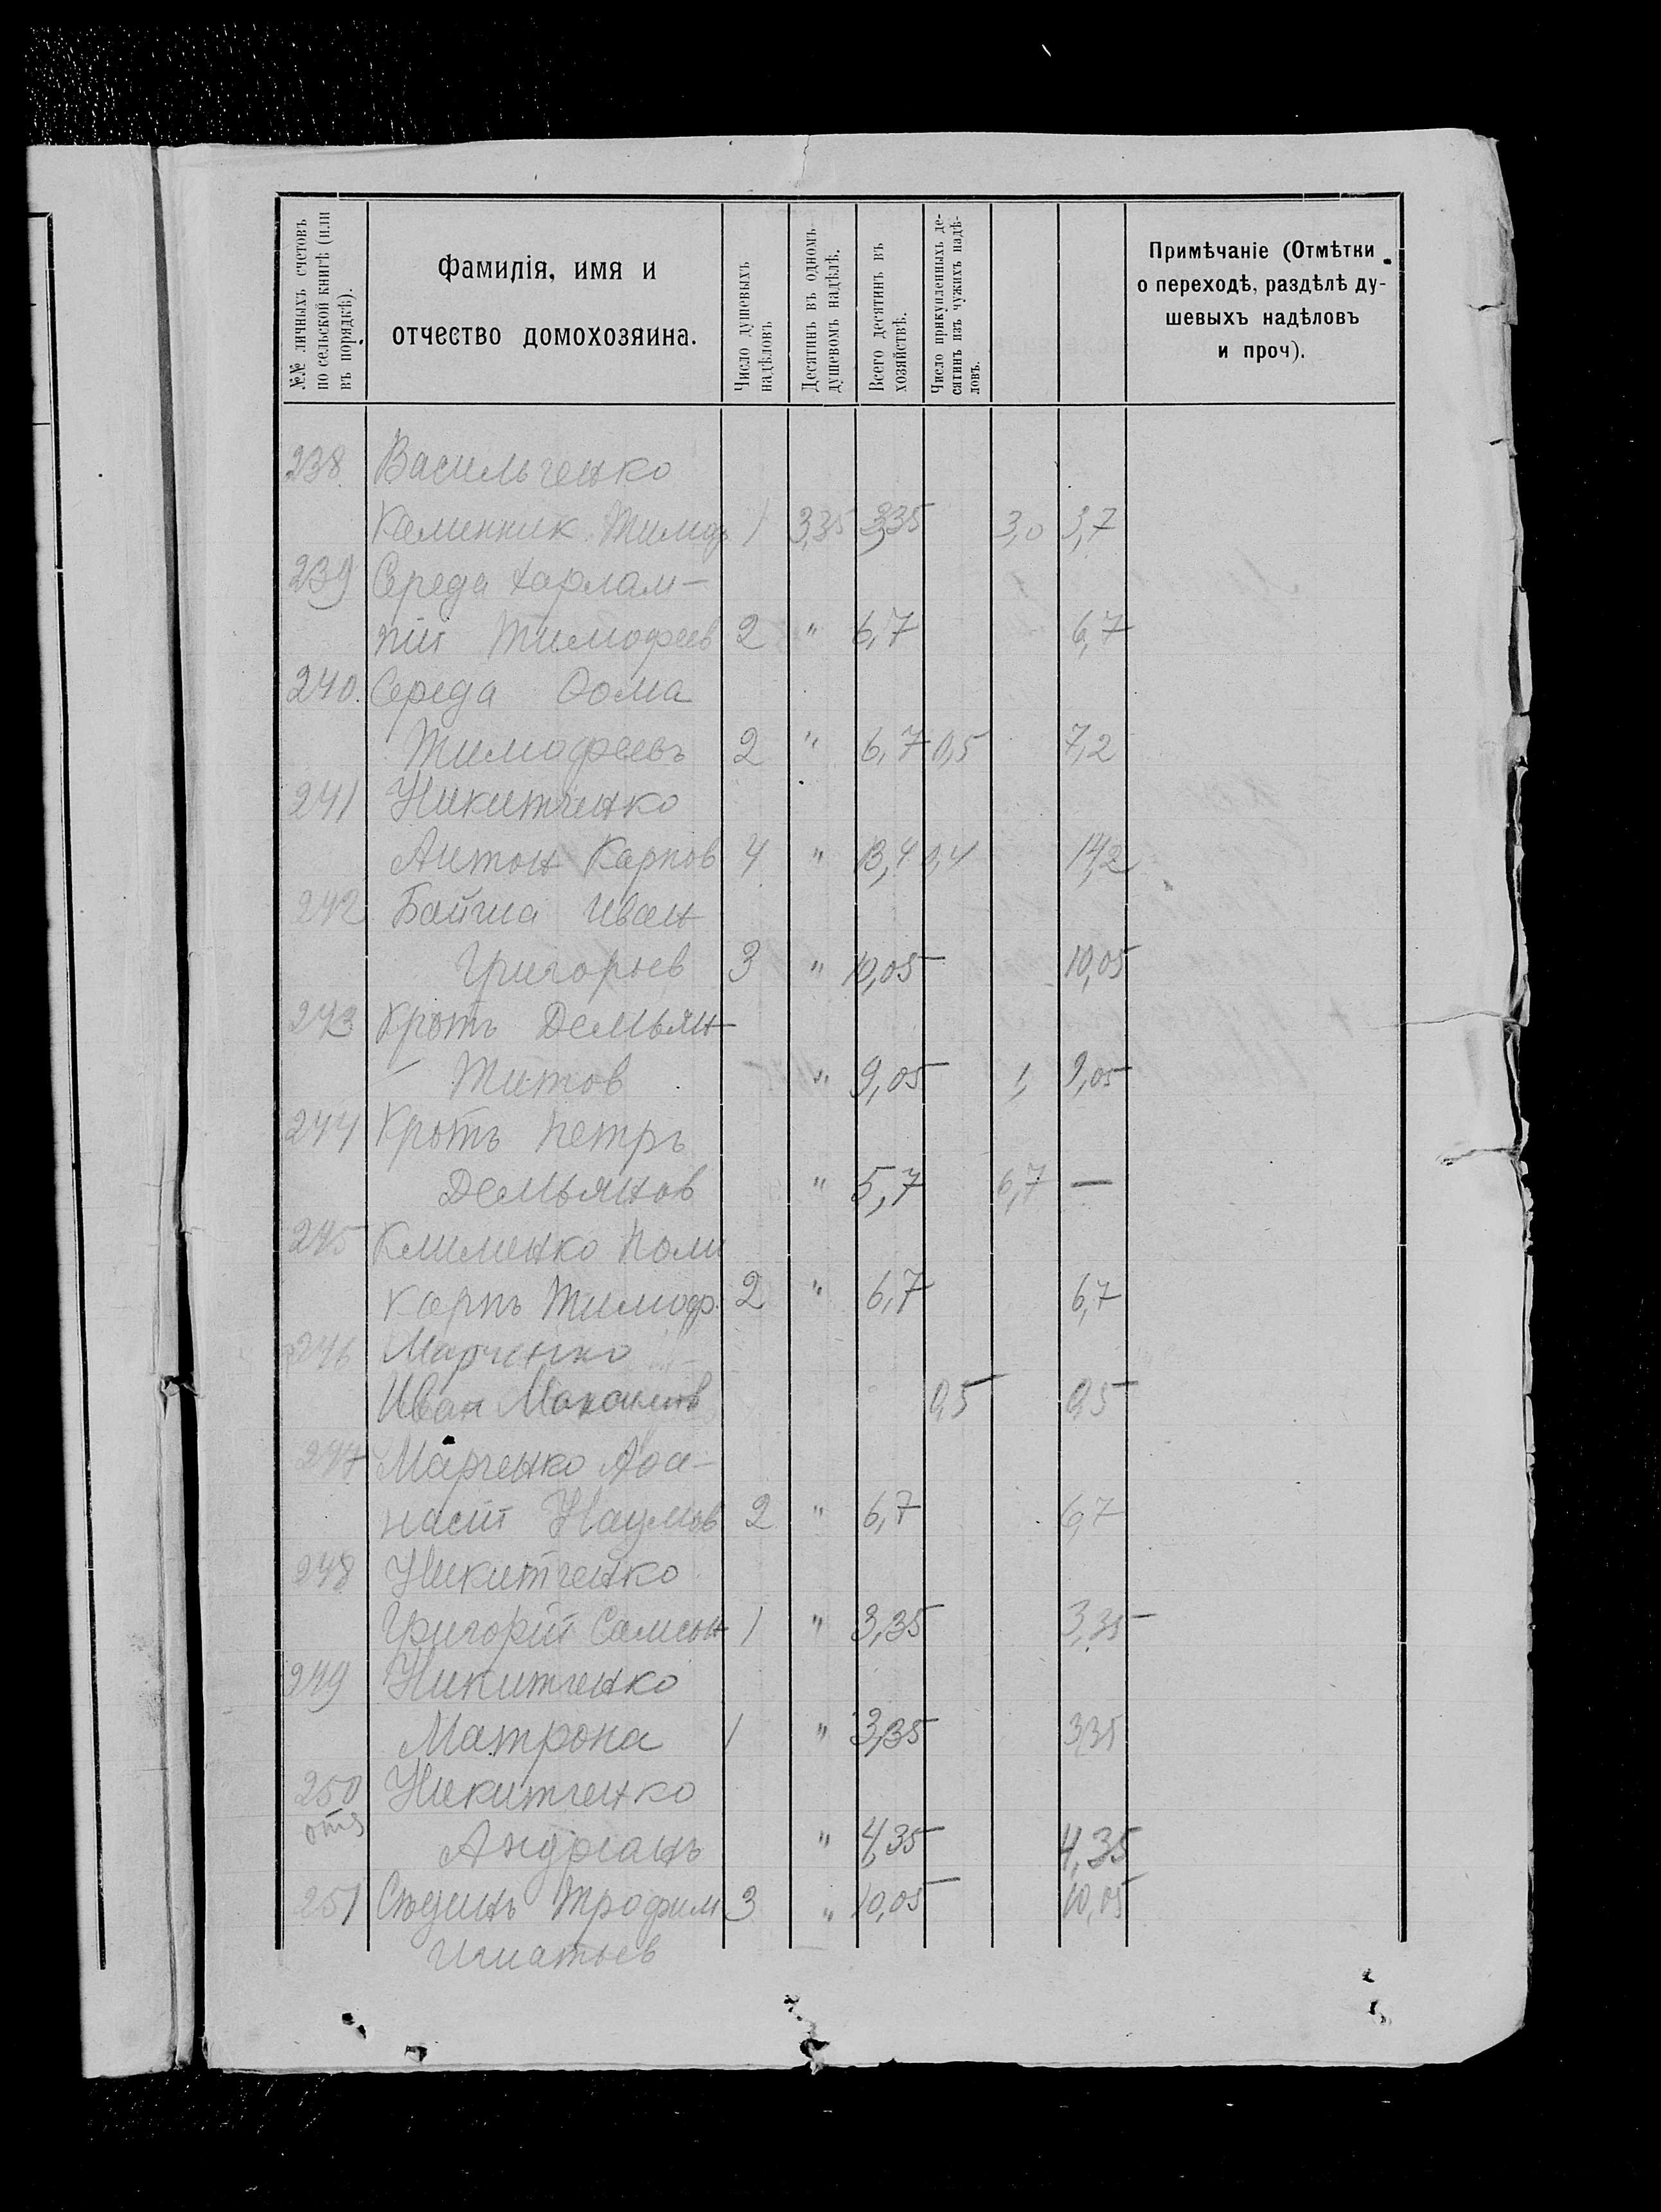 №№ личныхъ счетовъ по сельской книгѣ (или въ порядкѣ).
Фамилія, имя и отчество домохозяина.
Число душевыхъ надѣловъ
Десятинъ въ одномъ душевомъ надѣлѣ.
Всего десятинъ въ хозяйствѣ.
Число прикупленныхъ десятинъ изъ чужихъ надѣловъ.
Примѣчаніе (Отмѣтки о переходѣ, раздѣлѣ душевыхъ надѣловъ и проч).
238. Васильченко
Каленник Тимоф 1 3,35 3,35 3,0 3,7
239 Середа Харлам-
пій Тимофеев 2 " 6,7 6,7
240. Середа Ѳома
Тимофеевъ 2 " 6,7 0,5 7,2
241 Никитченко
Антон Карпов 4 " 13,4 14,2
242 Байша Иван
Григорьев 3 " 10,05 10,05
243 Кротъ Демьян
Титов " 9,05 1, 9,05
244 Кротъ Петръ
Демьянов " 5,7 6,7 —
245 Клименко Поли
карпъ Тимоф. 2 " 6,7 6,7
246 Марченко
Иван Максимов 0,5 0,5
247 Марченко Аѳа-
насій Наумов 2 " 6,7 6,7
248 Никитченко
Григорій Самсон 1 " 3,35 3,35
249 Никитченко
Матрона 1 " 3,35 3,35
250 Никитченко
Андріанъ " 4,35 4,35
251 Трофим 3 " 10,05 10,05
Игнатьев